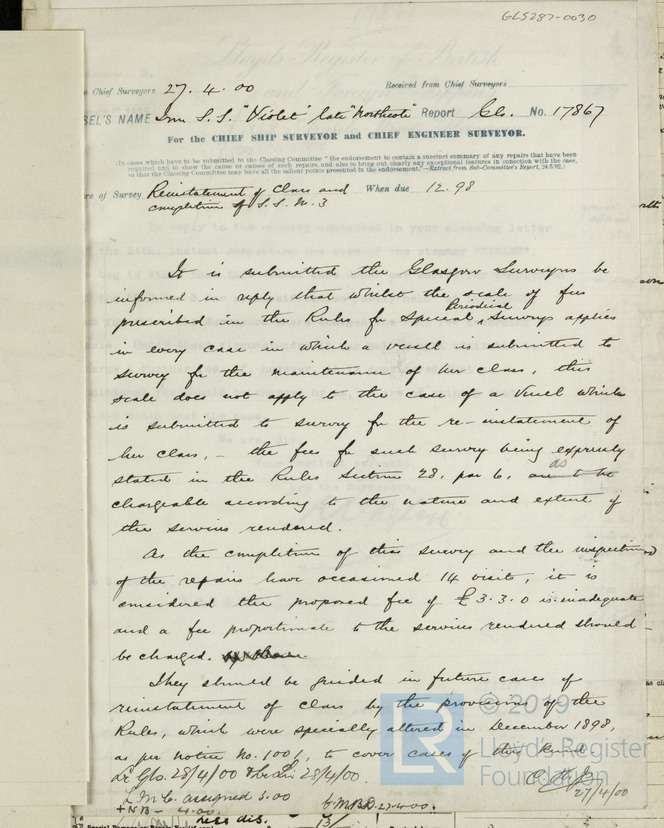 GLS287-0030
Chief Surveyors 27.4.00 Received from Chief Surveyors
SEL'S NAME Iron S.S. "Violet" late "Northcote" Report Gls. No. 17867
For the CHIEF SHIP SURVEYOR and CHIEF ENGINEER SURVEYOR.
In cases which have to be submitted to the Classing Committee "the endorsement to contain a succinct summary of any repairs that have been
required and to show the cause or causes of such repairs, and also to bring out clearly any exceptional features in connection with the case,
so that the Classing Committee may have all the salient points presented in the endorsement."—(Extract from Sub-Committee's Report,
re of Survey Reinstatement of Class and When due 12.98
completion of S.S. No. 3
It is submitted the Glasgow Surveyors be
informed in reply that whilst the scale of fees
prescribed in the Rules for Special Periodical Surveys applies
in every case in which a vessel is submitted to
survey for the maintenance of her class, this
scale does not apply to the case of a vessel which
is submitted to survey for the re-instatement of
her class, – the fees for such survey being expressly
stated in the Rules Section 28, par 6, as are to be
chargeable according to the nature and extent of
the services rendered.
As the completion of this survey and the inspection
of the repairs have occasioned 14 visits, it is
considered the proposed fee of £3.3.0 is inadequate
and a fee proportionate to the services rendered should
be charged.
They should be guided in future cases of
reinstatement of class by the provisions of the
Rules, which were specially altered in December 1898,
as per notice No. 1001, to cover cases of this kind
Lr Gls. 28/4/00 & Lr Liv 28/4/00.
27/4/00
L.M.C. assigned 3.00
+NB – 4.00
27.4.00.
© 2019
Lloyd's Register
Foundation
LR